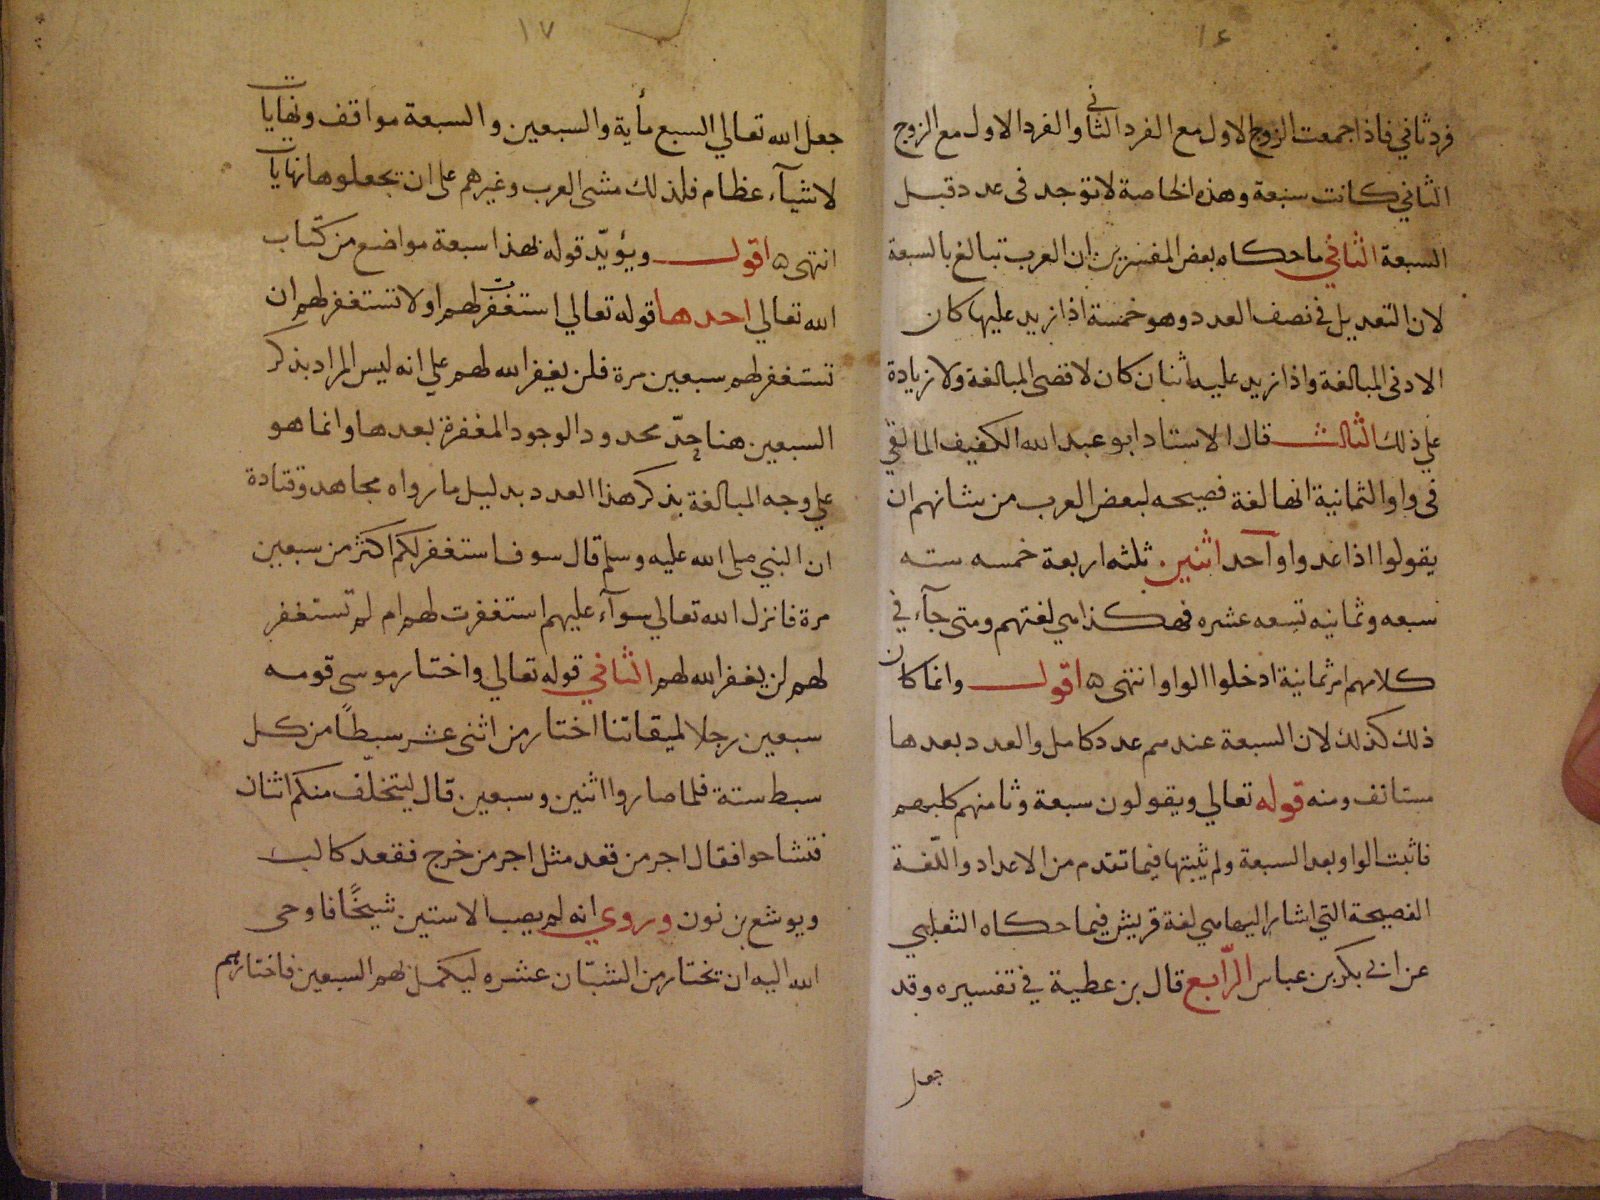 ١٦
فرد ثاني فاذا جمعت الزوج الاول مع الفرد الثاني والفرد الاول مع الزوج
الثاني كانت سبعة وهذه الخاصة لا توجد فى عدد قبل
السبعة الثاني ما حكاه بعض المفسرين ان العرب تبالغ بالسبعة
لان التعديل في نصف العدد وهو خمسة اذا زيد عليها كان
الادنى المبالغة واذا زيد عليه اثنان كان لاقصى المبالغة ولا زيادة
علي ذلك الثالث قال الاستاد ابو عبد الله الكفيف المالقي
فى واو الثمانية انها لغة فصيحه لبعض العرب من شانهم ان
يقولوا اذا عدوا واحد اثنين ثلثه اربعة خمسه سته
سبعه وثمانيه تسعه عشره فهكذا هي لغتهم ومتى جآء في
كلامهم امر ثمانية ادخلوا الواو انتهى ه اقول وانما كان
ذلك كذلك لان السبعة عندهم عدد كامل والعدد بعدها
مستانف ومنه قوله تعالي ويقولون سبعة وثامنهم كلبهم
فاثبت الواو بعد السبعة ولم يثبتها فيما تقدم من الاعداد واللّغة
الفصيحة التي اشار اليها هي لغة قريش فيما حكاه الثعلبي
عن ابي بكر بن عباس الرّابع قال بن عطية في تفسيره وقد
جعل
١٧
جعل الله تعالي السبع مأية والسبعين والسبعة مواقف ونهايات
لاشيآء عظام فلذلك مشى العرب وغيرهم على ان يجعلوها نهايات
انتهى ه اقول ويؤيّد قوله لهذا سبعة مواضع من كتّاب
الله تعالي احدها قوله تعالي استغفرت لهم او لا تستغفر لهم ان
تستغفر لهم سبعين مرة فلن يغفر الله لهم علي انه ليس المراد بذكر
السبعين هنا حدّ محدود الوجود المغفرة بعدها وانما هو
علي وجه المبالغة بذكر هذا العدد بدليل ما رواه مجاهد وقتادة
ان النبي صلى الله عليه وسلم قال سوف استغفر لكم اكثر من سبعين
مرة فانزل الله تعالي سوآء عليهم استغفرت لهم ام لم تستغفر
لهم لن يغفر الله لهم الثاني قوله تعالي واختار موسى قومه
سبعين رجلا لميقاتنا اختار من اثنى عشر سبطًا من كل
سبط ستة فلما صاروا اثنين وسبعين قال ليتخلّف منكم اثنان
فتشاحوا فقال اجر من قعد مثل اجر من خرج فقعد كالب
ويوشع بن نون وروي انه لم يصب الا ستين شيخًا فاوحى
الله اليه ان تختار من الشبّان عشره ليكمل لهم السبعين فاختارهم